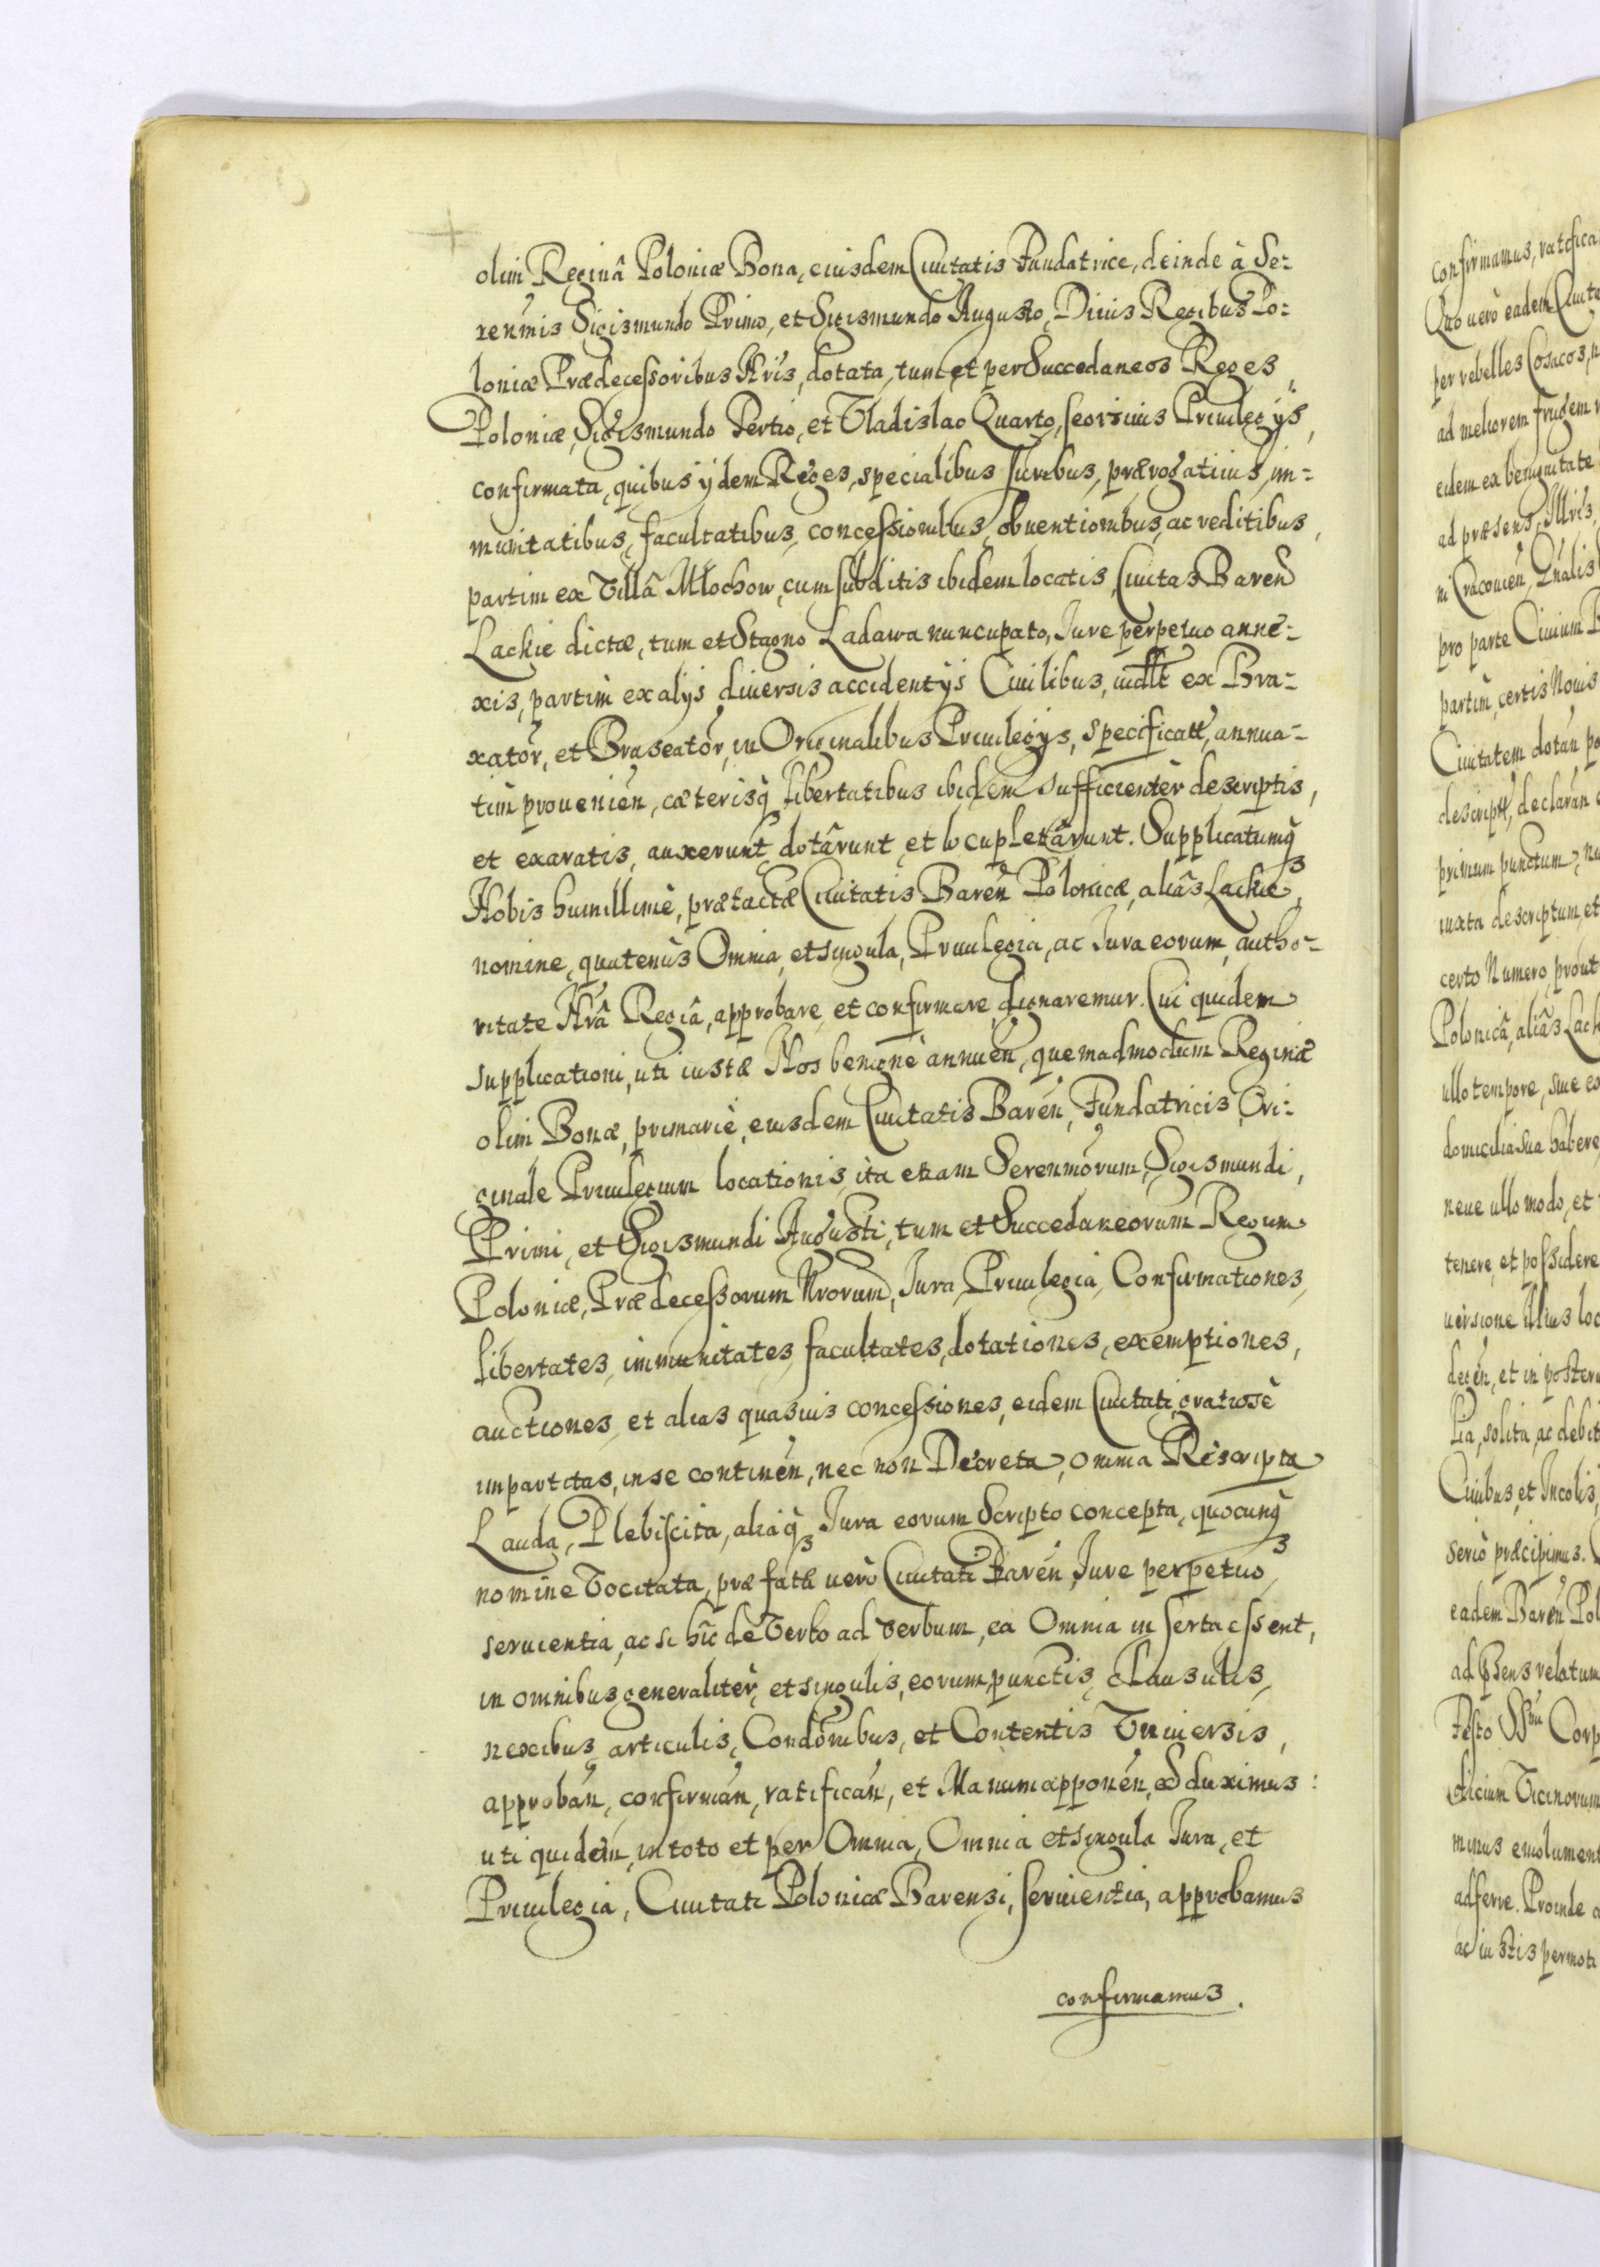 olim Reginâ Poloniæ Bona, eiusdem Ciuitatis Fundatrice, deinde à Se-
renmis Sigismundo Primo, et Sigismundo Augusto, Diuis Regibus Po-
loniæ Prædecessoribus Nris, dotata, tum et per Succedaneos Reges
Poloniæ, Sigismundo Tertio, et Vladislao Quarto, seorsiuis Priuilegijs,
confirmata, quibus ijdem Reges, specialibus Iuribus, prærogatiuis, im-
munitatibus, facultatibus, concessionibus, obuentionibus, ac reditibus,
partim ex Villâ Młochow, cum subditis ibidem locatis, Ciuitas Baren
Lackie dictæ, tum et Stagno Ladawa nuncupato, Iure perpetuo anne-
xis, partim ex alijs diuersis accidentijs Ciuilibus, ex Bra-
xator, et Braseator, in Originalibus Priuilegijs, specificatt, annua-
tim prouenien, cæterisq libertatibus ibidem sufficientèr descriptis,
et exaratis, auxerunt, dotârunt, et locupletârunt. Supplicatumq3
Nobis humillimè, prætactæ Ciuitatis Baren Polonicæ, aliâs Lackie,
nomine, quatenùs Omnia, et singula, Priuilegia, ac Iura eorum, autho-
ritate Nrâ Regiâ, approbare et confirmare dignaremur. Cui quidem
supplicationi, uti iustæ Nos benignè annuen, quemadmodum Reginæ
olim Bonæ, primariè, eiusdem Ciuitatis Baren, Fundatricis, Ori-
ginale Priuilegium locationis, ita etiam Serenmorum, Sigismundi,
Primi, et Sigismundi Augusti, tum et Succedaneorum Regum
Poloniæ, Prædecessorum Nrorum, Iura, Priuilegia, Confirmationes,
libertates, immunitates, facultates, dotationes, exemptiones,
auctiones, et alias quasuis concessiones, eidem Ciuitati gratiosè
impartitas, in se continen, nec non Decreta, omnia Rescripta
Lauda, Plebiscita, aliaq3 Iura eorum Scripto concepta, quocunq3
nomine Vocitata, præfatæ uerò Ciuitati Baren, Iure perpetuo,
seruientia, ac si hic de Verbo ad Verbum, ea Omnia inserta essent,
in omnibus generalitèr, et singulis, eorum, punctis, clausulis,
nexibus, articulis, Condonibus, et Contentis Vniuersis,
approban, confirman, ratifican, et Manum apponen, duximus:
uti quidem, in toto et per Omnia, Omnia et singula Iura, et
Priuilegia, Ciuitati Polonicæ Barensi, seruientia, approbamus
confirmamus.
confirmamus, ratifica
Quo uerò eadem Ciuita
per rebelles Cosacos,
ad meliorem frugem
eidem ex benignitate
ad præsens, Illris,
in Cracouien,
pro parte Ciuium B
partim, certis Nouis
Ciuitatem dotan po
descriptt, declaran
primum punctum, nu
iuxta descriptum, et
certo Numero, prout
Polonicâ, aliâs Lack
ullo tempore, siue ex
domicilia sua habere,
neue ullo modo, et
tenere, et possidere
uersione illius loc
degen, et in posteru
lia, solita, ac debit
Ciuibus, et Incolis,
seriò præcipimus.
eadem Baren Pol
ad psens relatum
Festo Corp
Vicinorum
minus emolument
adferre. Proinde
ac iustis permoti